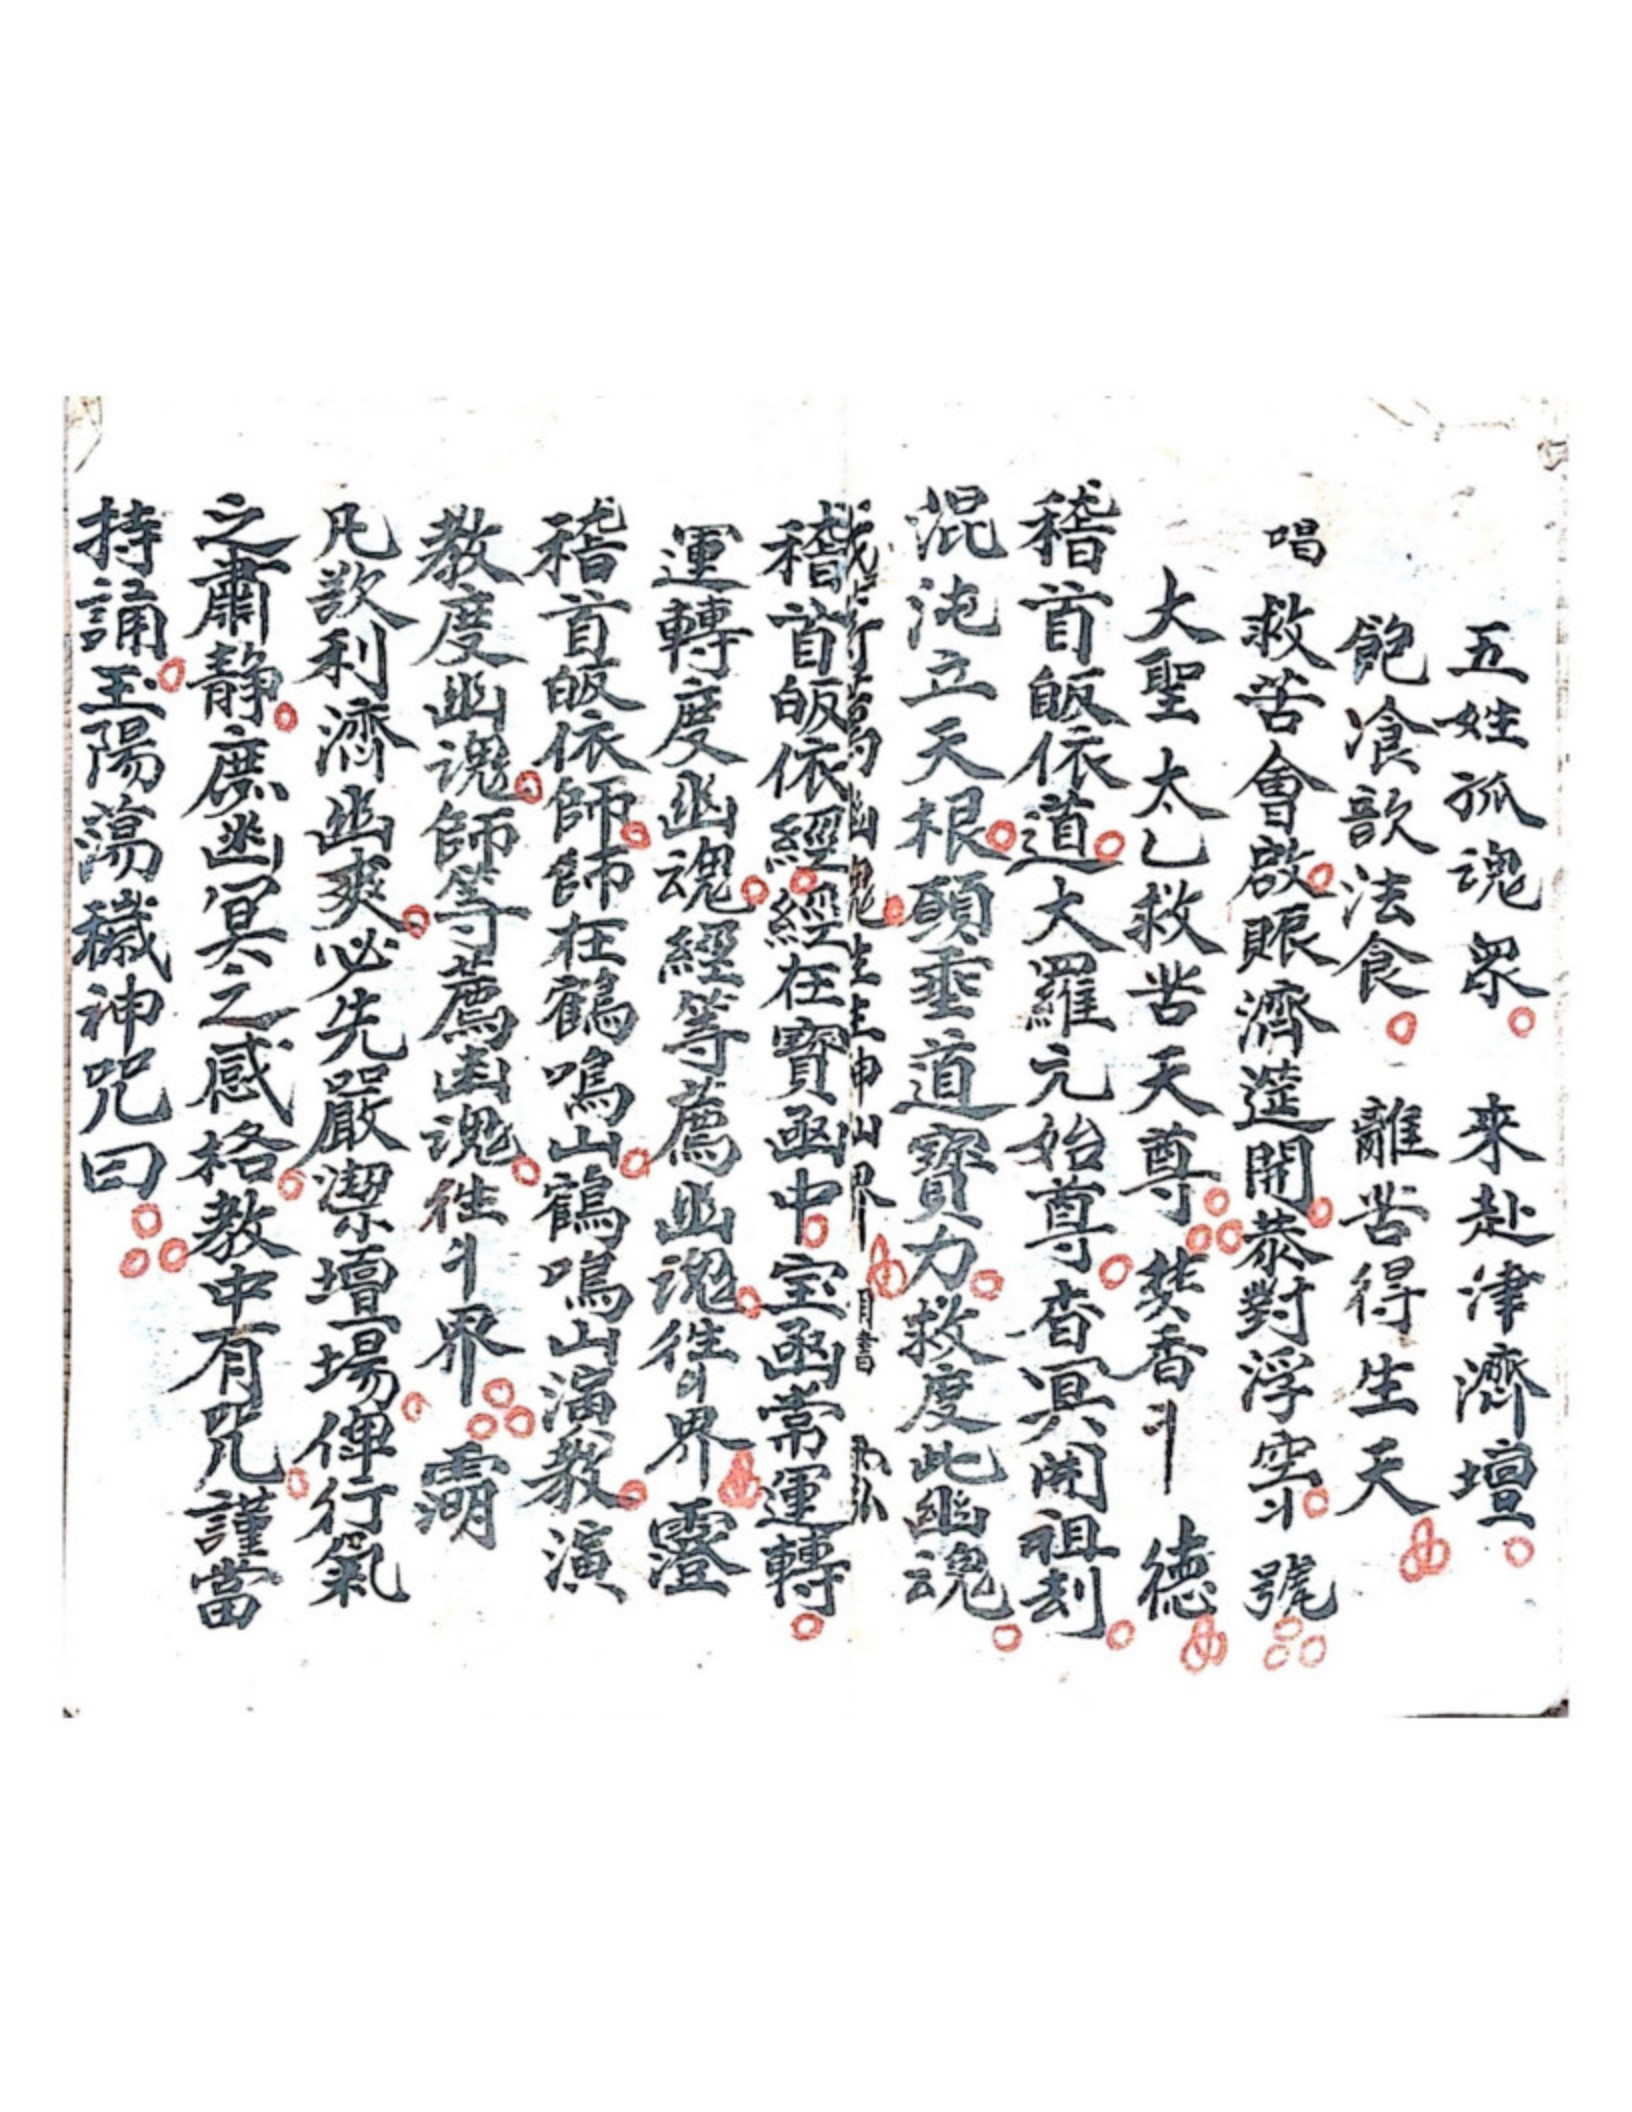 五姓孤魂眾 来赴津濟壇
飽飡歆法食 離苦得生天
唱 救苦會啟賑濟莚開恭對浮空 號
大聖太乙救苦天尊 焚香 德
稽首皈依道大羅元始尊杳冥開祖刼
混沌立天根願垂道寶力救度此幽魂
稽首皈依經經在寶函中宝函常運轉
運轉度幽魂經等薦幽魂徃界 霊
稽首皈依師師在鶴鳴山鶴鳴山演教演
教度幽魂師等薦幽魂徃界
凡欲利濟幽爽必先嚴潔壇場俾行氣
之肅静庶幽冥之感格教中有咒謹當
持誦玉陽蕩穢神咒曰